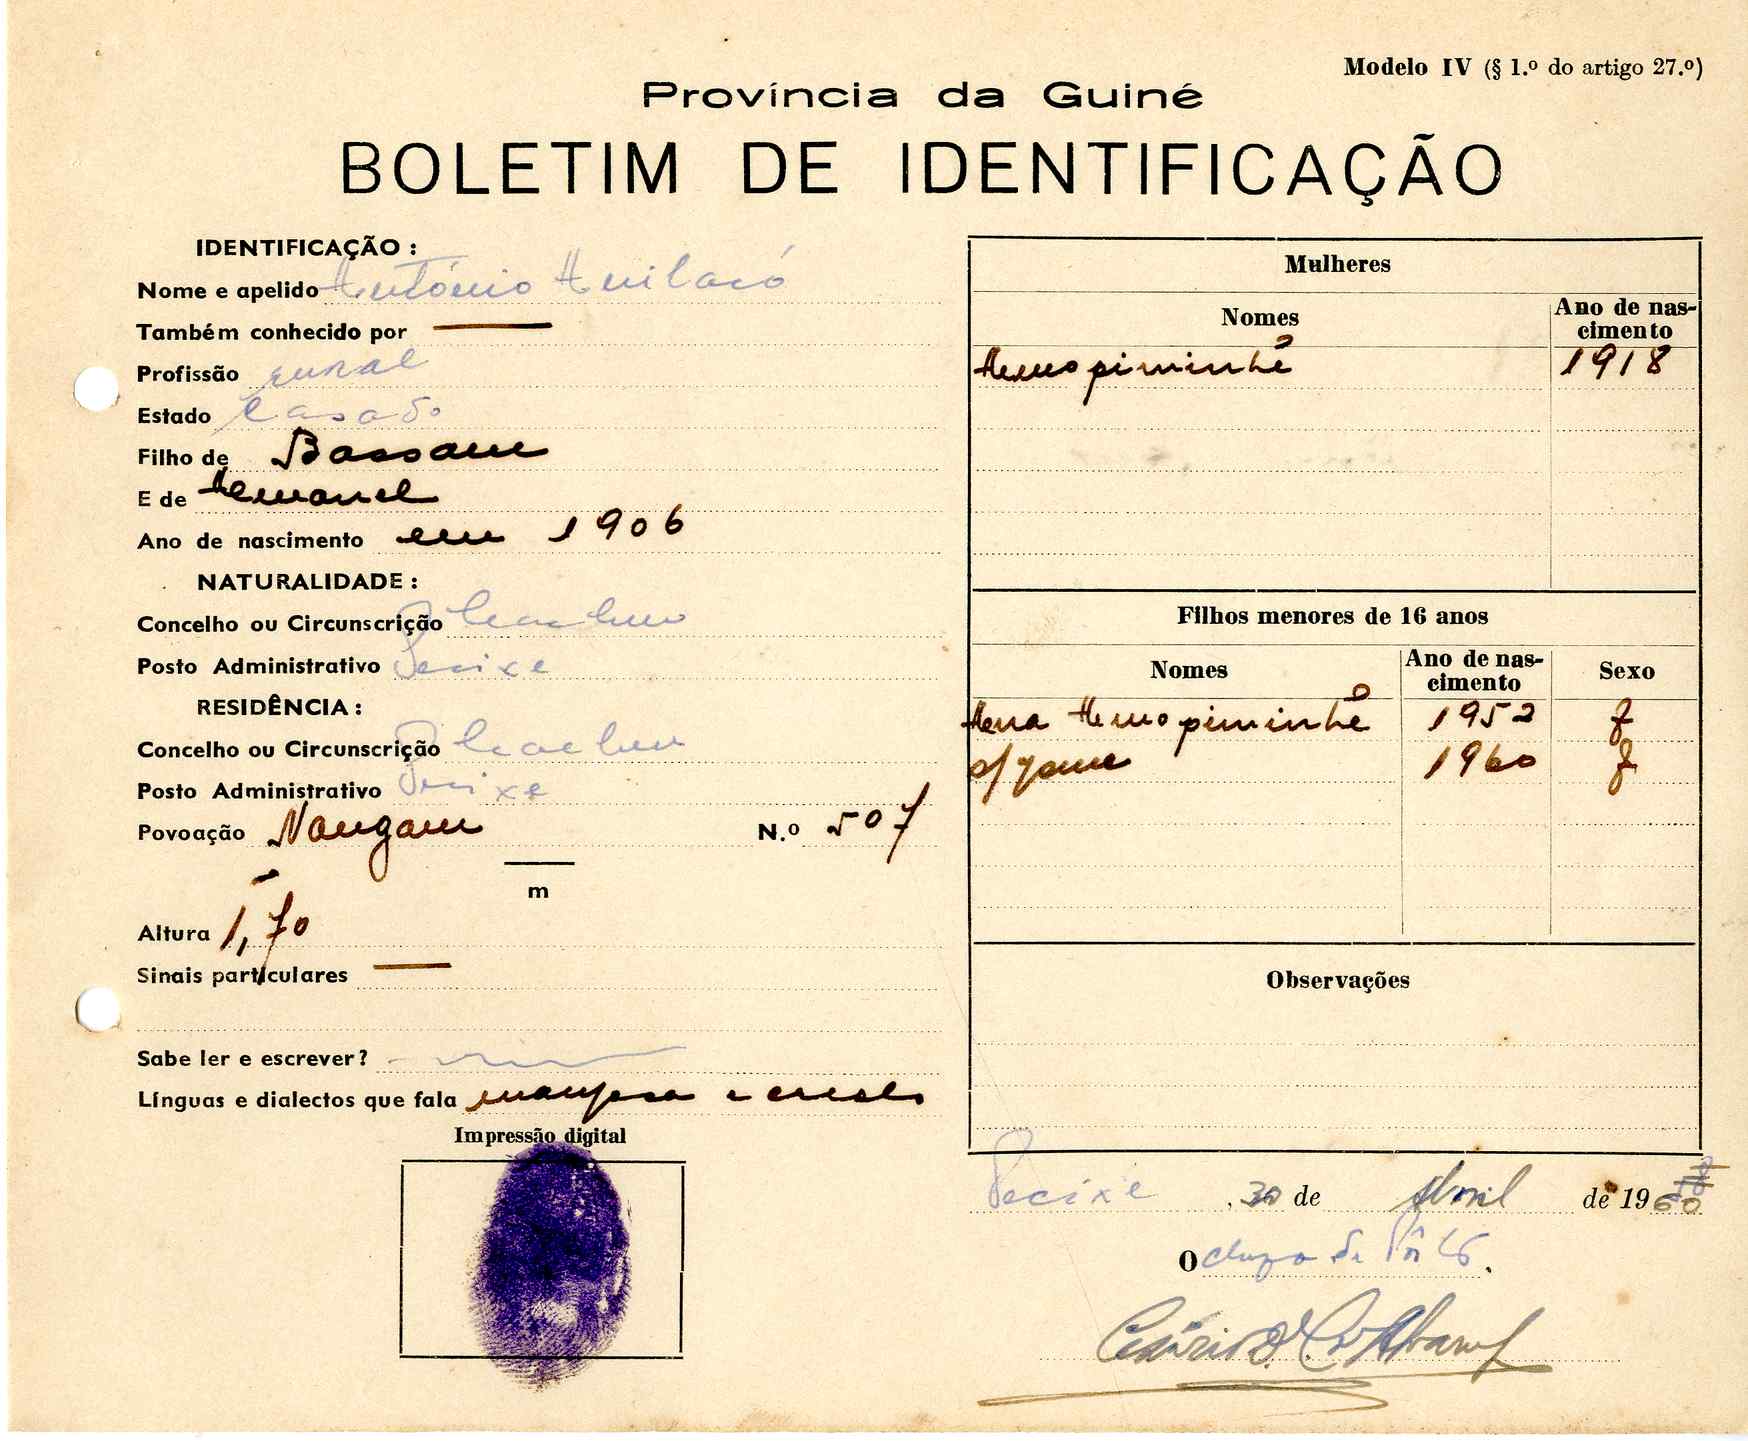 Modelo IV (§ 1.º do artigo 27.º)
Província da Guiné
BOLETIM DE IDENTIFICAÇÃO
IDENTIFICAÇÃO :
Nome e apelido António
Também conhecido por —
Profissão rural
Estado Casado
Filho de Bassam
E de
Ano de nascimento em 1906
NATURALIDADE :
Concelho ou Circunscrição Cacheu
Posto Administrativo Pecixe
RESIDÊNCIA :
Concelho ou Circunscrição Cacheu
Posto Administrativo Pecixe
Povoação Nangam N.º 507
m
Altura 1,70
Sinais particulares —
Sabe ler e escrever?
Línguas e dialectos que fala manjaca e creolo
Impressão digital
Mulheres
Nomes Ano de nas-
cimento
1918
Filhos menores de 16 anos
Nomes Ano de nas-
cimento Sexo
1952 f
1960 f
Observações
Pecixe, 30 de Abril de 1960
O chefe de Pôsto.